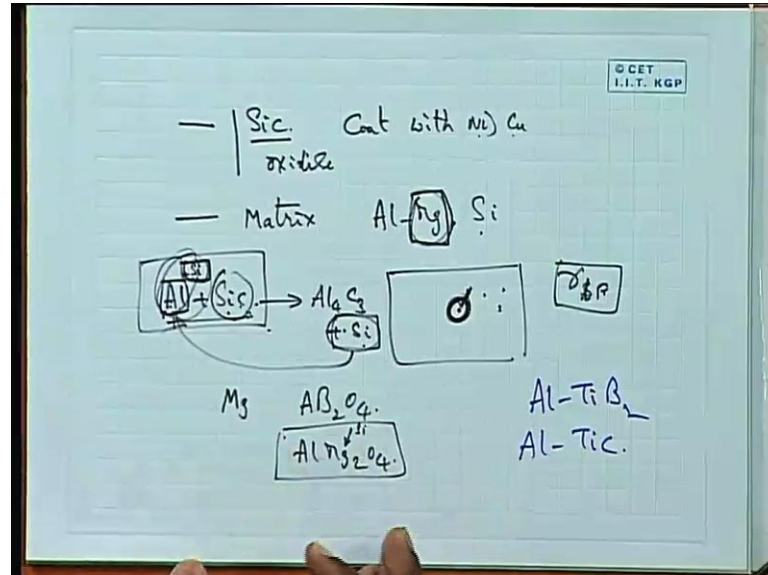 © CET
I.I.T. KGP
— Sic. Coat with Ni) Cu
oxidize
— Matrix Al-Mg) Si
Si
Al + Sic. → Al4C3
+ Si
Mg AB2O4.
Si
AlMg2O4.
Al-TiB2
Al-Tic.